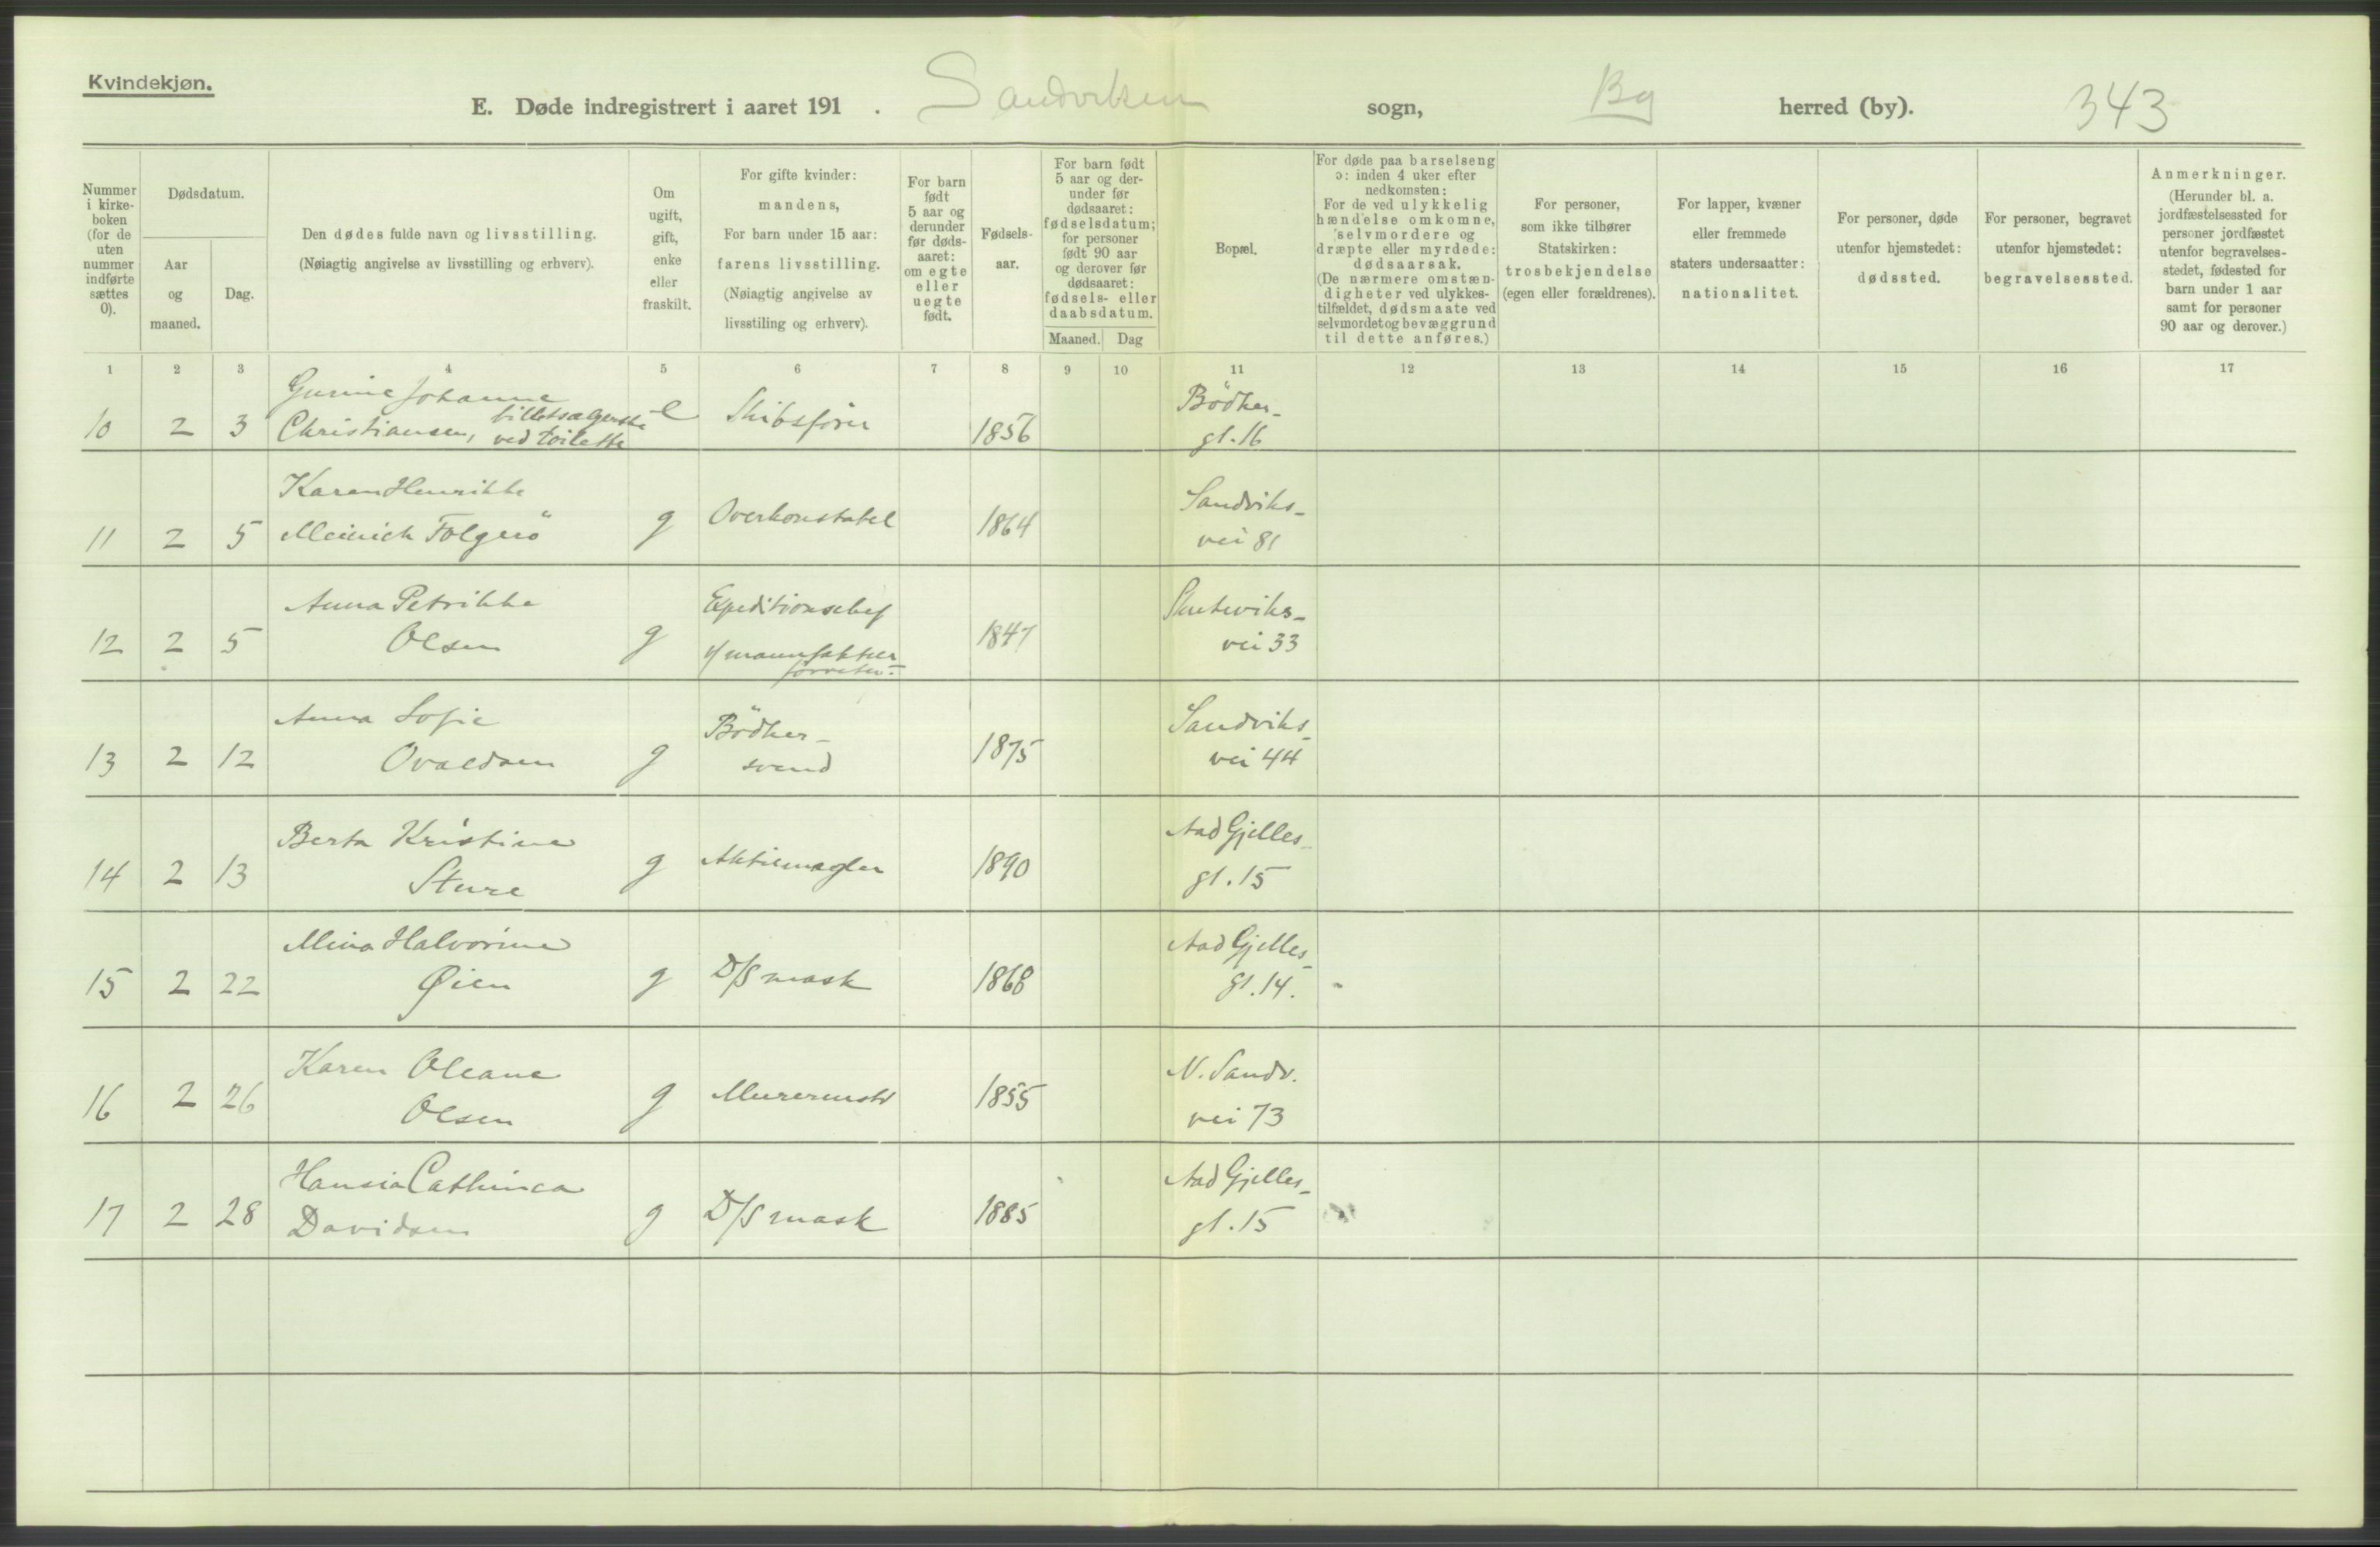 Kvindekjøn.
E. Døde indregistrert i aaret 191 . Sandviken sogn, Bg herred (by). 343
Nummer i kirke-boken (for de uten nummer indførte sættes 0).
Dødsdatum.
Aar og maaned.
Dag.
Den dødes fulde navn og livsstilling.
(Nøiagtig angivelse av livsstilling og erhverv).
Om ugift, gift, enke eller fraskilt.
For gifte kvinder:
mandens,
For barn under 15 aar:
farens livsstilling.
(Nøiagtig angivelse av
livsstiling og erhverv).
For barn født 5 aar og derunder før døds-aaret: om egte eller uegte født.
Fødsels-aar.
For barn født 5 aar og der-under før dødsaaret: fødselsdatum; for personer født 90 aar og derover før dødsaaret: fødsels- eller daabsdatum.
Maaned. Dag
Bopæl.
For døde paa barselseng
ɔ: inden 4 uker efter
nedkomsten:
For de ved ulykkelig
hændelse omkomne,
selvmordere og
dræpte eller myrdede:
dødsaarsak.
(De nærmere omstæn-
digheter ved ulykkes-
tilfældet, dødsmaate ved
selvmordet og bevæggrund
til dette anføres.)
For personer,
som ikke tilhører
Statskirken:
trosbekjendelse
(egen eller forældrenes).
For lapper, kvæner
eller fremmede
staters undersaatter:
nationalitet.
For personer, døde
utenfor hjemstedet:
dødssted.
For personer, begravet
utenfor hjemstedet:
begravelsessted.
Anmerkninger.
(Herunder bl. a.
jordfæstelsessted for
personer jordfæstet
utenfor begravelses-
stedet, fødested for
barn under 1 aar
samt for personer
90 aar og derover.)
1 2 3 4 5 6 7 8 9 10 11 12 13 14 15 16 17
Gurine Johanne Bödker-
10 2 3 Christiansen, billetsælgerske ved toilette e Skibsfører 1856 gt. 16
Karen Henrikke Sandviks-
11 2 5 Meinich Folgerö g Overkonstabel 1864 vei 81
Anna Petrikke Expeditionschef Skuteviks-
12 2 5 Olsen g i/ manufaktur forretn. 1847 vei 33
Anna Sofie Bödker- Sandviks-
13 2 12 g svend 1875 vei 44
Berta Kristine Aad Gjelles-
14 2 13 Sture g Aktiemægler 1890 gt. 15
Mina Halvorine Aad Gjelles-
15 2 22 Øien g D/S mask 1868 gt. 14.
Karen Oleane N. Sandv.
16 2 26 Olsen g Murermstr 1855 vei 73
Hansia Cathinca Aad Gjelles-
17 2 28 Davidsen g D/S mask 1885 gt. 15